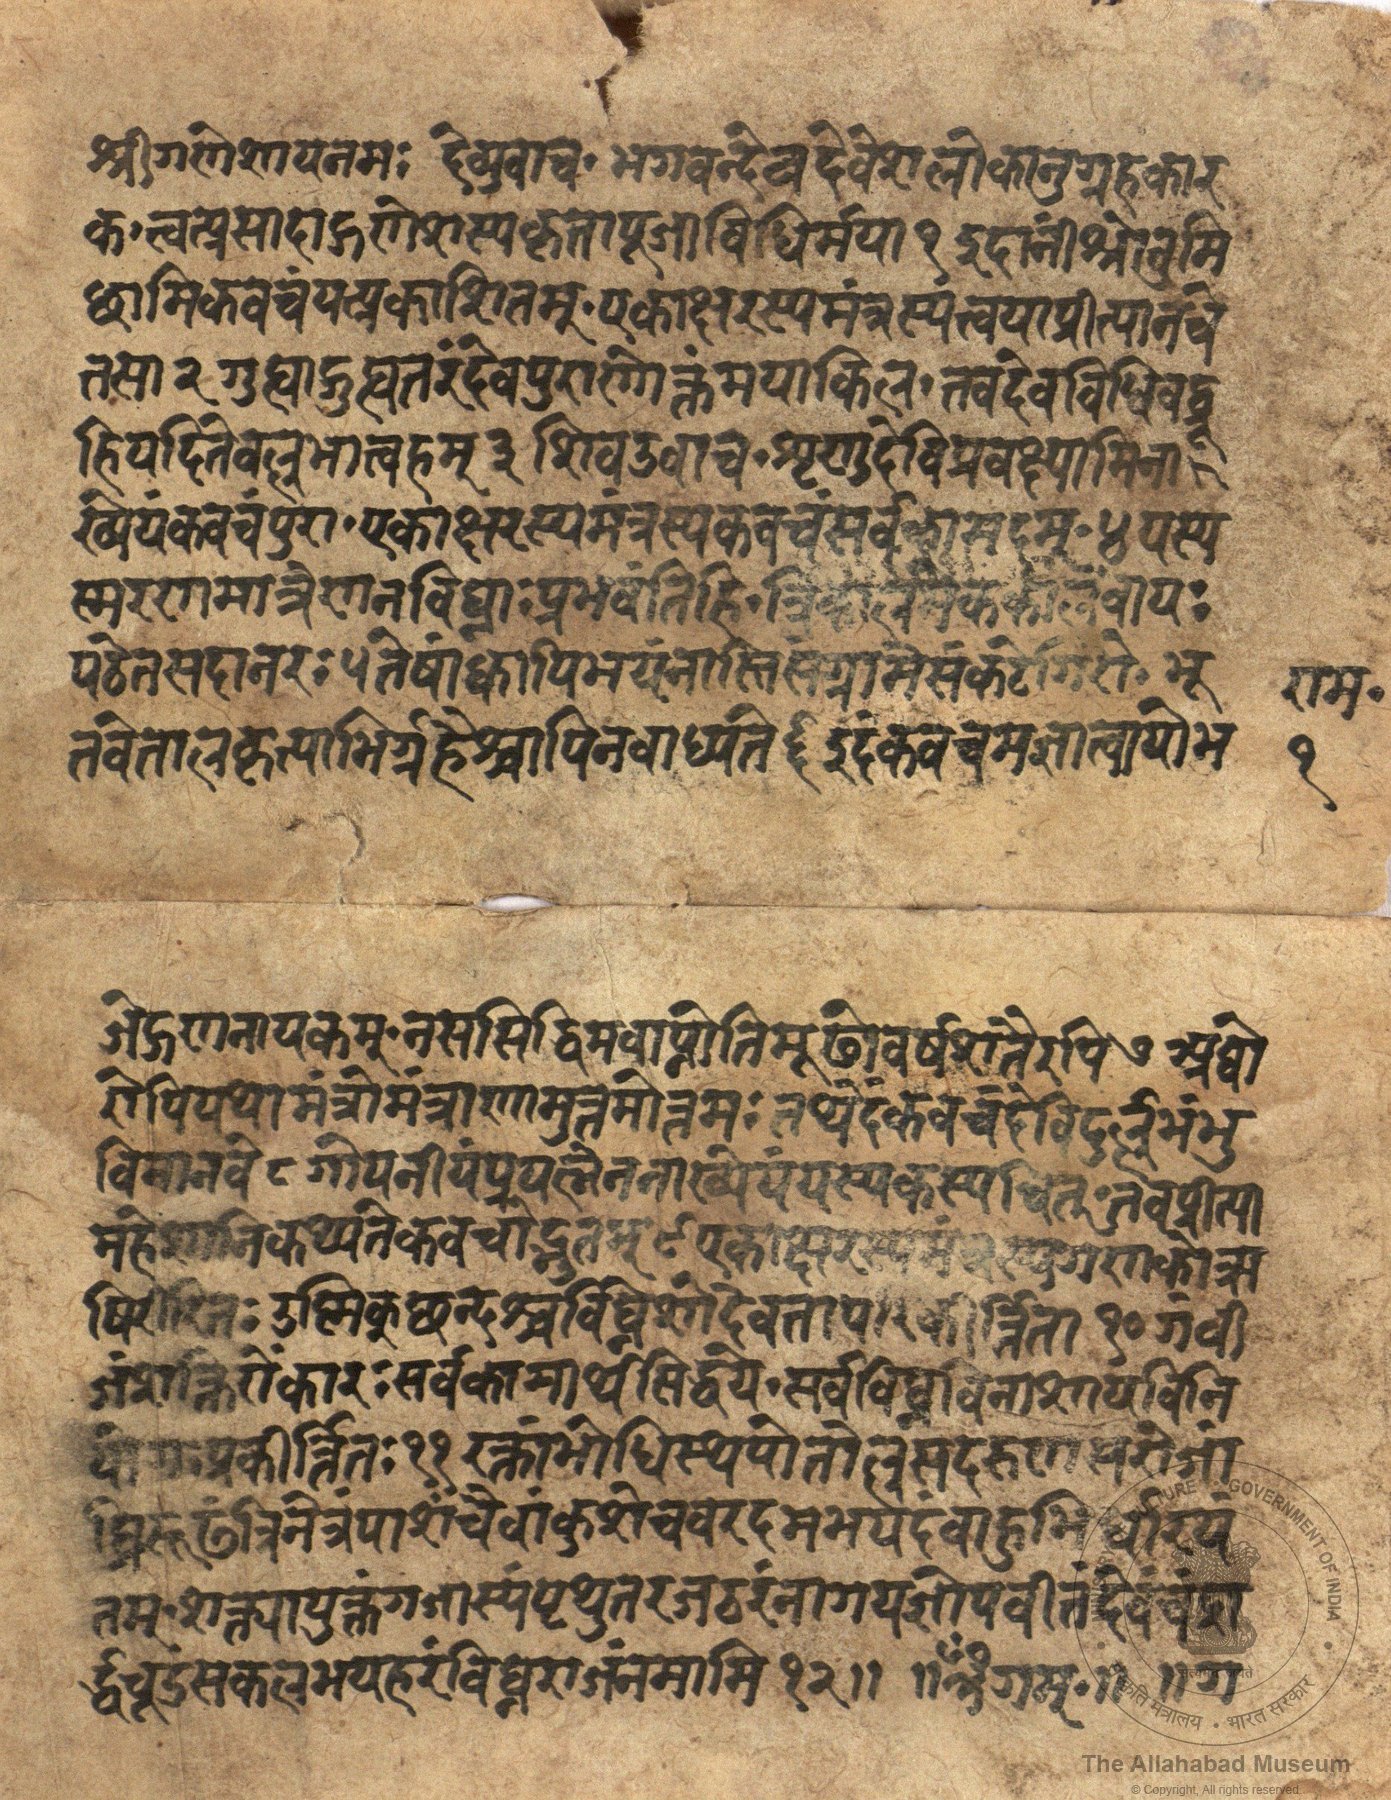 श्रीगणेशायनमः देव्युवाच॰ भगवन्देवदेवेशलोकानुग्रहकार
क॰त्वत्प्रसादाद्गणेशस्यकृतापूजाविधिर्मया १ इदानींश्रोतुमि
छामिकवचंयत्प्रकाशितम्॰एकाक्षरस्यमंत्रस्यत्वयाप्रीत्यानचे
तसा २ गुह्याद्गुह्यतरंदेवपुराणोक्तंमयाकिल॰तवदेवविधिवद्ब्रू
हियदितेवल्लभात्वहम् ३ शिवउवाच॰शृणुदेविप्रवक्ष्यामिना
ख्येयंकवचंपुरा॰एकाक्षरस्यमंत्रस्यकवचंसर्वकामदम्॰४ यस्य
स्मरणमात्रेणनविघ्नाःप्रभवंतिहि॰त्रिकालमेककालंवायः
पठेतसदानरः ५ तेषांक्वापिभयंनास्तिसंग्रामेसंकटेगिरौ॰भू
तवेतालकृत्याभिर्ग्रहैश्चापिनवाध्यते ६ इदंकवचमज्ञात्वायोभ
राम॰
१
जेद्गणनायकम्॰नससिद्धिमवाप्नोतिमूढोवर्षशतैरपि ७ अघो
रोपियथामंत्रोमंत्राणामुत्तमोत्तमः तथेदंकवचंदेविदुर्ल्लभंभु
विमानवे ८ गोपनीयंप्रयत्नेननाख्येयंयस्यकस्यचित्॰तवप्रीत्या
महेशानिकथ्यतेकवचोद्भुतम् ९ एकाक्षरस्यमंत्रस्यगणकोऋ
षिरीरितः उष्णिक्छन्दश्चर्विघ्नेशोदेवतापरिकीर्त्तिता १० गंवी
जंशक्तिरोंकारः सर्वकामार्थसिद्धये॰सर्वविघ्नविनाशायविनि
योगःप्रकीर्त्तितः ११ रक्तांभोधिस्थपोतोल्लसदरुणसरोजां
घ्रिरूढंत्रिनेत्रंपाशंचैवांकुशंचवरदमभयदंवाहुभिर्धारयं
तम्॰शक्त्यायुक्तंगजास्यंपृथुतरजठरंनागयज्ञोपवीतंदेवंचंद्रा
र्द्धचूडंसकलभयहरंविघ्नराजंनमामि १२॥ ॥ॐगम्॰॥ ॥ग
MINISTRY OF CULTURE · GOVERNMENT OF INDIA
सत्यमेव जयते
संस्कृति मंत्रालय · भारत सरकार
The Allahabad Museum
© Copyright, All rights reserved.